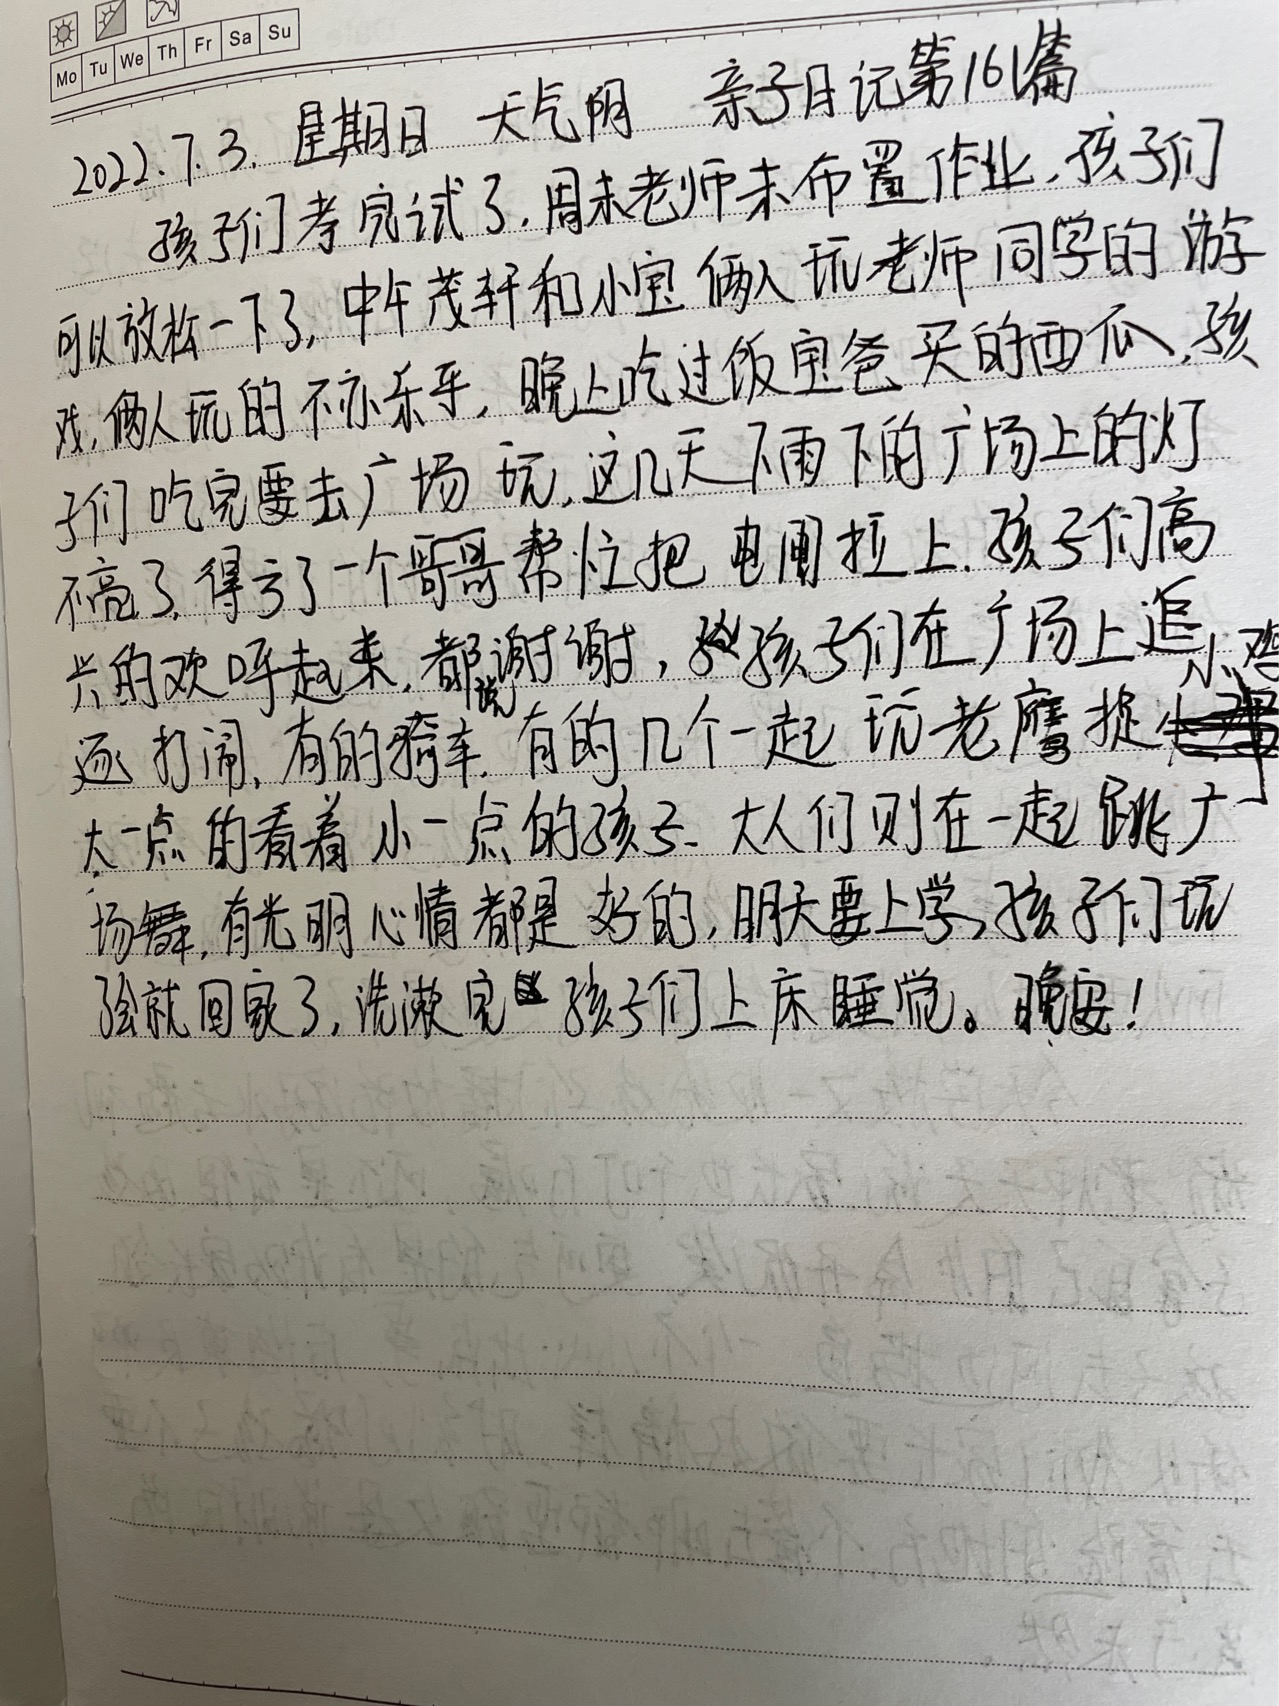 Mo Tu We Th Fr Sa Su
2022.7.3. 星期日 天气阴 亲子日记第161篇
孩子们考完试了,周末老师未布置作业,孩子们
可以放松一下了,中午茂轩和小宝俩人玩老师同学的游
戏,俩人玩的不亦乐乎,晚上吃过饭宝爸买的西瓜,孩
子们吃完要去广场玩,这几天下雨下的广场上的灯
不亮了,得亏了一个哥哥帮忙把电闸拉上,孩子们高
兴的欢呼起来,都说谢谢,孩子们在广场上追
逐打闹,有的骑车,有的几个一起玩老鹰捉小鸡
大一点的看着小一点的孩子、大人们则在一起跳广
场舞,有光明心情都是好的,明天要上学,孩子们玩
会就回家了,洗漱完孩子们上床睡觉。晚安!